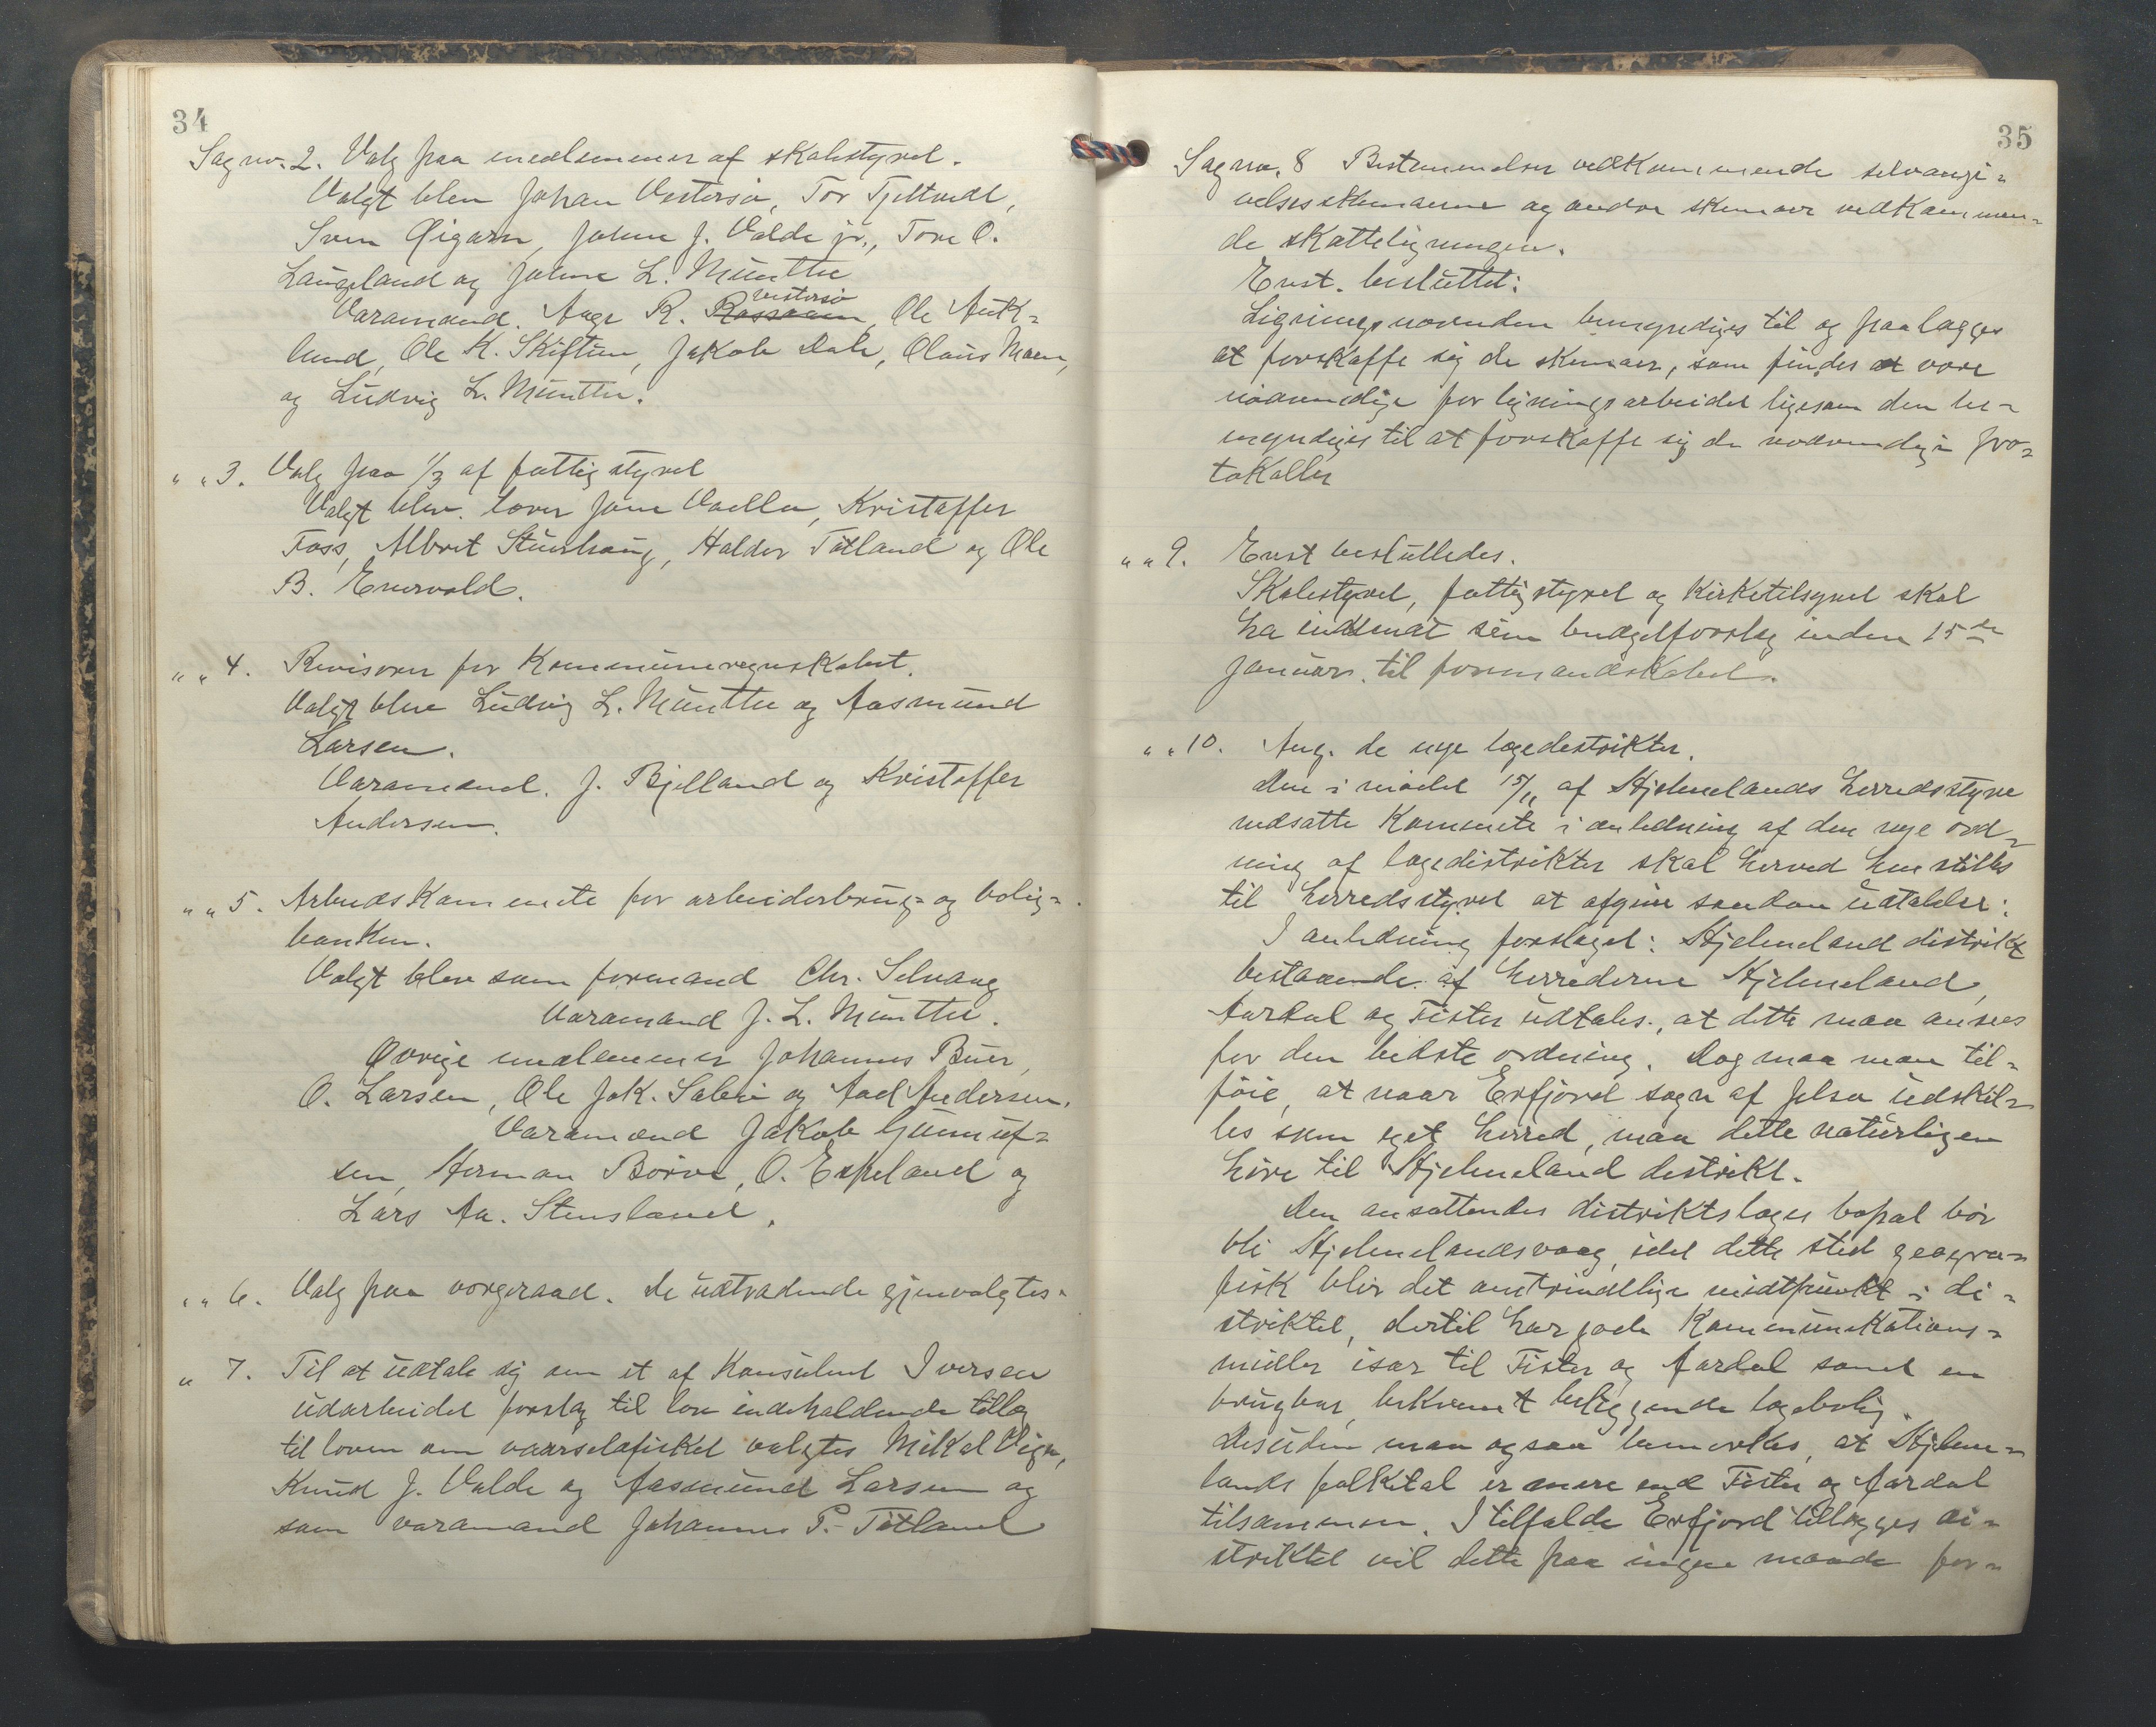 34
Sag no. 2. Valg paa medlemmer af skolestyret.
Valgt blev Johan Vestersjø, Tor Tjeltveit,
Sven Rigarn, Johne J. Valde jr., Tore O.
Laugeland og Johne L. Münthe
Varamænd. Aage R. Vestersø, Ole Auk-
lund, Ole K. Skiftun, Jakob Dale, Olaus Maen,
og Ludvig L. Münthe.
" " 3. Valg paa 1/3 af fattigstyret
Valgt blev. lærer Jone Vaella, Kristoffer
Foss, Albret Stueshaug, Haldor Tøtland og Ole
B. Enervold.
" " 4. Revisorer for Kommuneregnskabet.
Valgt blev Ludvig L. Münthe og Aasmund
Larsen.
Varamænd. J. Bjelland og Kristoffer
Andersen.
" " 5. Arbeidskommite for arbeiderbrug- og bolig-
banken.
Valgt blev som formand Chr. Selvaag
Varamand J. L. Münthe.
Øvrige medlemmer Johannes Buer,
O. Larsen, Ole Jak. Sabøe og Aad Andersen.
Varamænd Jakob Gunnuf-
sen, Herman Børve, O. Espeland og
Lars Aa. Stensland.
" " 6. Valg paa vergeraad. De udtrædende gjenvalgtes.
" 7. Til at udtale sig om et af Konsulent Iversen
udarbeidet forslag til lov indeholdende tillæg
til loven om vaarsildfisket valgtes Mikal Vign,
Knud J. Valde og Aasmund Larsen og
som varamand Johannes P. Tøtland
35
Sag no. 8 Bestemmelser vedkommende selvangi-
velsesskemaerne og andre skemaer vedkommen-
de skatteligningen.
Enst. besluttet:
Ligningsnævnden bemyndiges til og paalægges
at forskaffe sig de skemaer, som findes at være
nødvendige for ligningsarbeidet ligesom den be-
myndiges til at forskaffe sig de nødvendige pro-
tokoller
" " 9. Enst besluttedes.
Skolestyret, fattigstyret og Kirketilsynet skal
ha indsendt sine budgetforslag inden 15de
januar. til formandskabet.
" " 10. Ang. de nye lægedestrikter.
Den i mødet 15/11 af Hjelmelands herredsstyre
nedsatte Kommite i anledning af den nye ord-
ning af lægedistrikter skal herved henstilles
til herredsstyret at afgive saadan udtalelse:
I anledning forslaget: Hjelmeland distrikt
bestaaende af herrederne Hjelmeland,
Aardal og Fister udtales, at dette maa ansees
for den bedste ordning. Dog maa man til-
føie, at naar Erfjord sogn af Jelsa udskil-
les som eget herred, maa dette naturligen
høre til Hjelmeland destrikt.
Den ansættendes distriktslæges bopæl bør
bli Hjelmelandsvaag, idet dette sted geogra-
fisk blir det omtrindelige midtpunkt i di-
striktet, dertil har gode Kommunikations-
midler især til Fister og Aardal samt en
brugbar, bekvemt beliggende lægebolig.
Desuden maa ogsaa bemerkes, at Hjelme-
lands folketal er mere end Fister og Aardal
tilsammen. I tilfælde Erfjord tillægges di-
striktet vil dette paa ingen maade for-